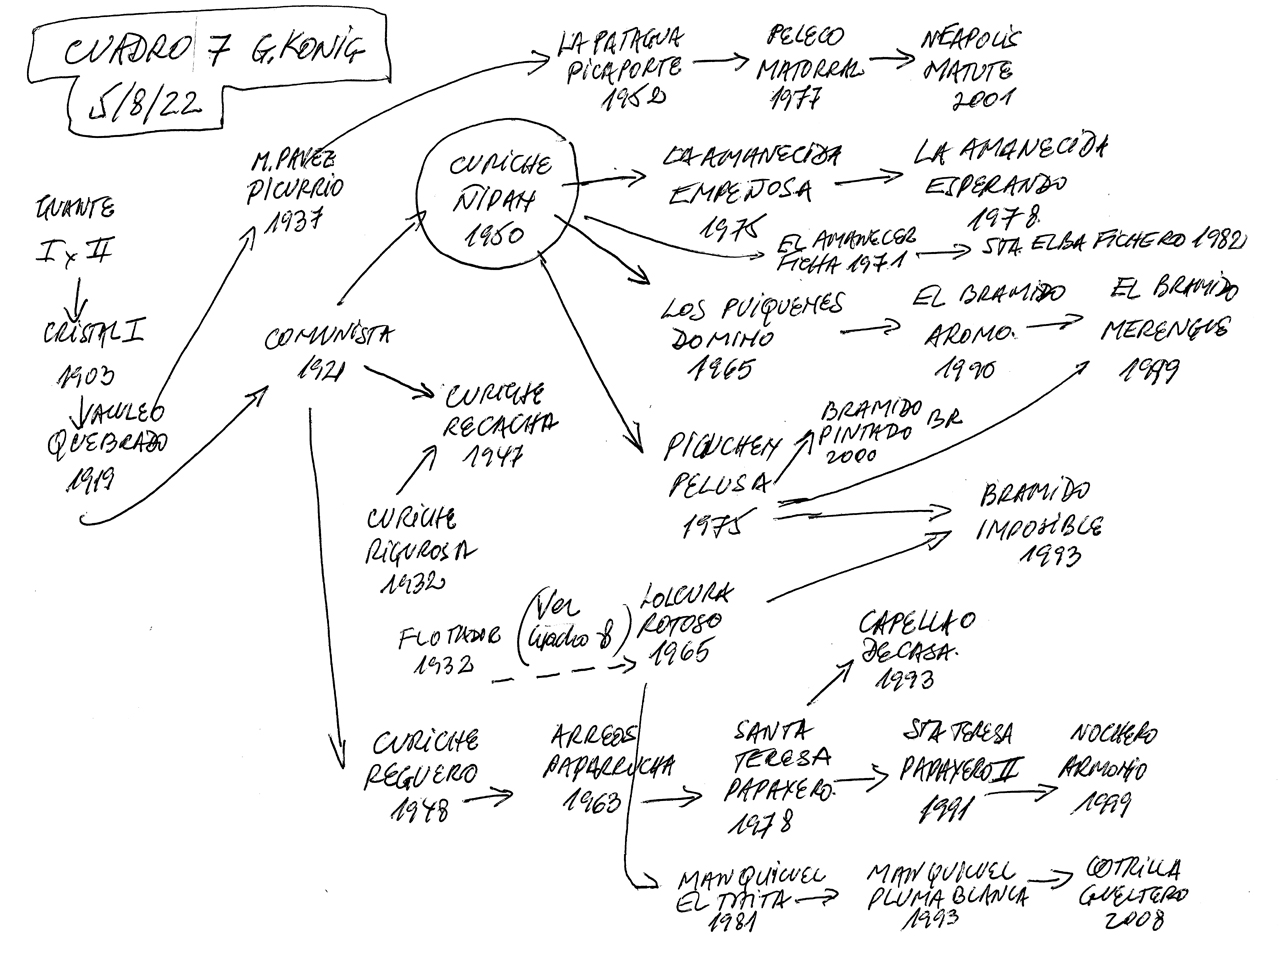 CUADRO 7 G.KONIG
5/8/22
LA PATAGUA
PICAPORTE
1952
PELECO
MATORRAL
1977
NEAPOLIS
MATUTE
2001
M. PAVEZ
PICURRIO
1937
CURICHE
ÑIPAN
1950
LA AMANECIDA
EMPEÑOSA
1975
LA AMANECIDA
ESPERANDO
1978
EL AMANECER
FICHA 1971
STA. ELBA FICHERO 1982
GUANTE
I y II
CRISTAL I
1903
QUEBRADO
1919
COMUNISTA
1921
LOS PUIQUENES
DOMINO
1965
EL BRAMIDO
AROMO.
1990
EL BRAMIDO
MERENGUE
1999
CURICHE
RECACHA
1947
CURICHE
RIGUROSA
1932
PICUCHEN
PELUSA
1975
BRAMIDO
PINTADO BR
2000
BRAMIDO
IMPOSIBLE
1993
FLOTADOR
1932
(Ver
Cuadro 8)
LOLCURA
ROTOSO
1965
CAPELLAO
DECASA.
1993
CURICHE
REGUERO
1948
ARREOS
PAPARRUCHA
1963
SANTA
TERESA
PAPAXERO.
1978
STA TERESA
PAPAXERO II
1991
NOCHERO
ARMONIO
1999
MANQUICUEL
EL TATITA
1981
MANQUICUEL
PLUMA BLANCA
1993
COTRILLA
GUELTERO
2008